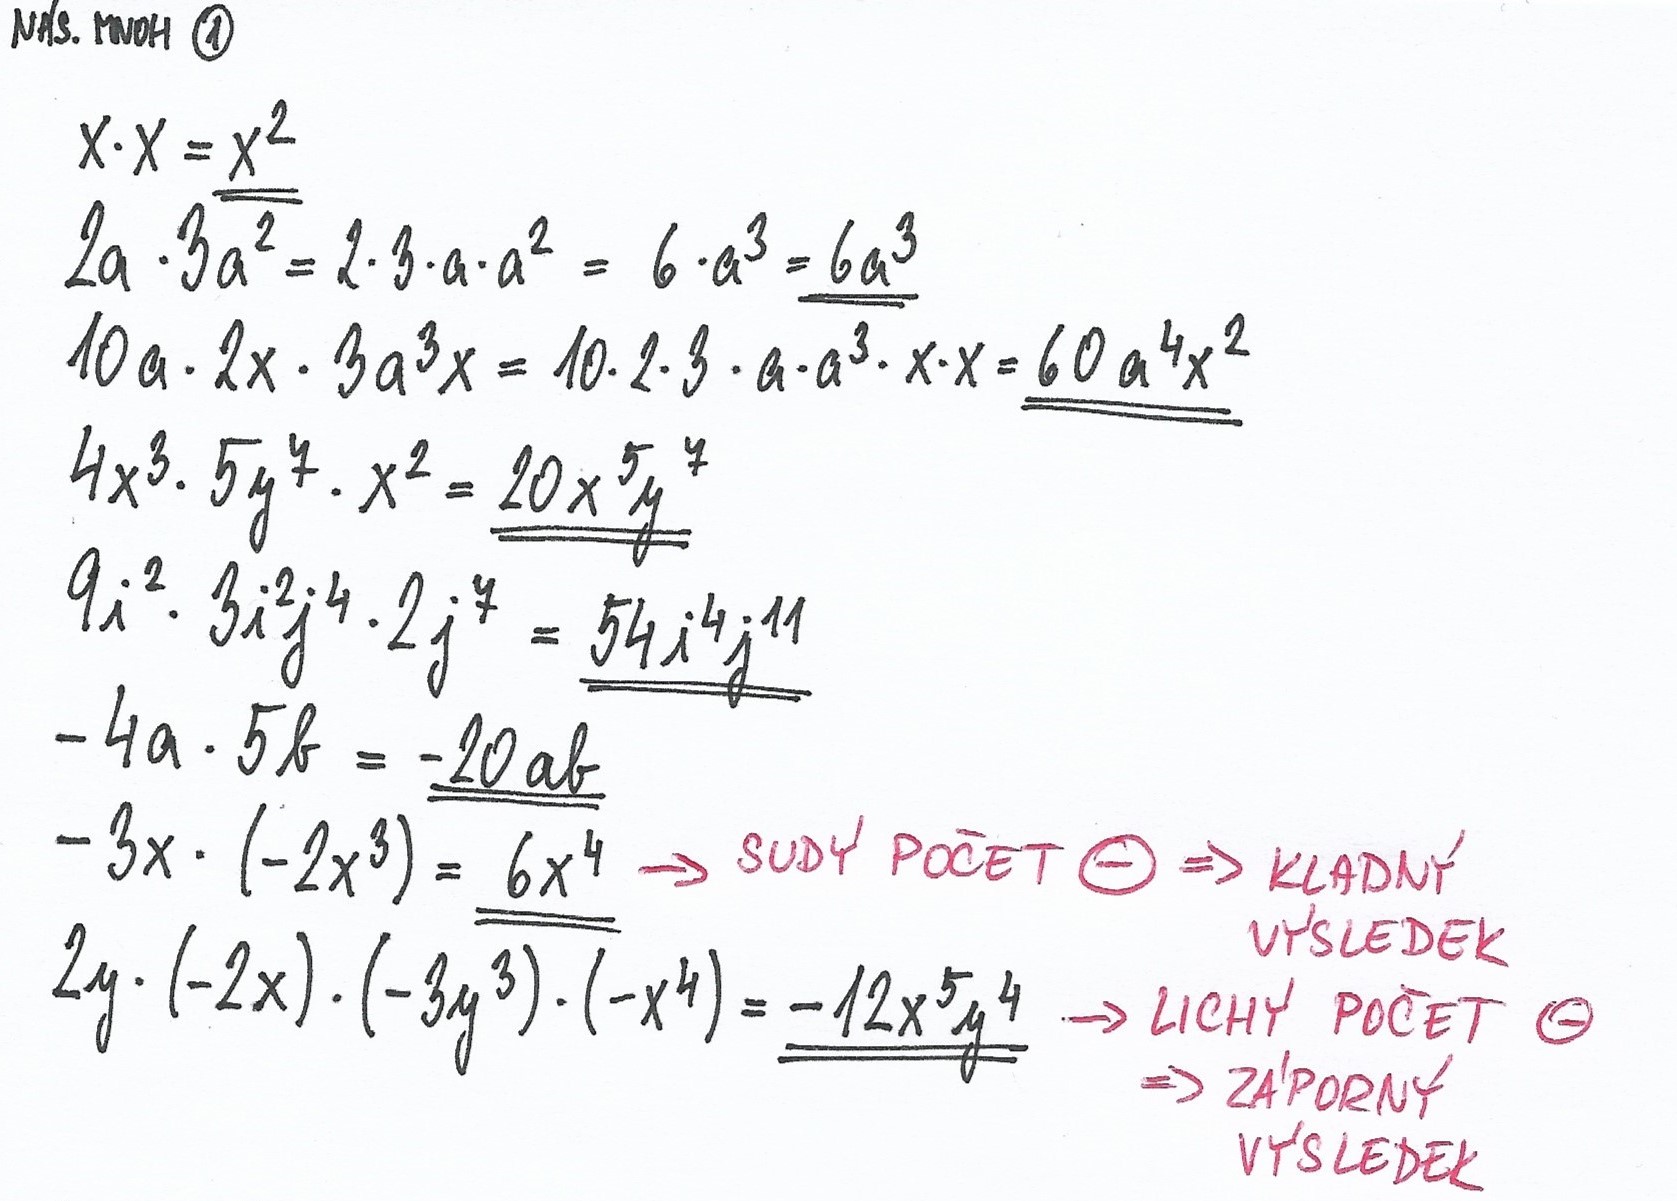 NÁS. MNOH ①
x·x = x²
2a · 3a² = 2·3·a·a² = 6·a³ = 6a³
10a · 2x · 3a³x = 10·2·3·a·a³·x·x = 60a⁴x²
4x³ · 5y⁷ · x² = 20x⁵y⁷
9i² · 3i²j⁴ · 2j⁷ = 54i⁴j¹¹
-4a · 5b = -20ab
-3x · (-2x³) = 6x⁴ → SUDÝ POČET ⊖ => KLADNÝ
VÝSLEDEK
2y · (-2x) · (-3y³) · (-x⁴) = -12x⁵y⁴ → LICHÝ POČET ⊖
=> ZÁPORNÝ
VÝSLEDEK